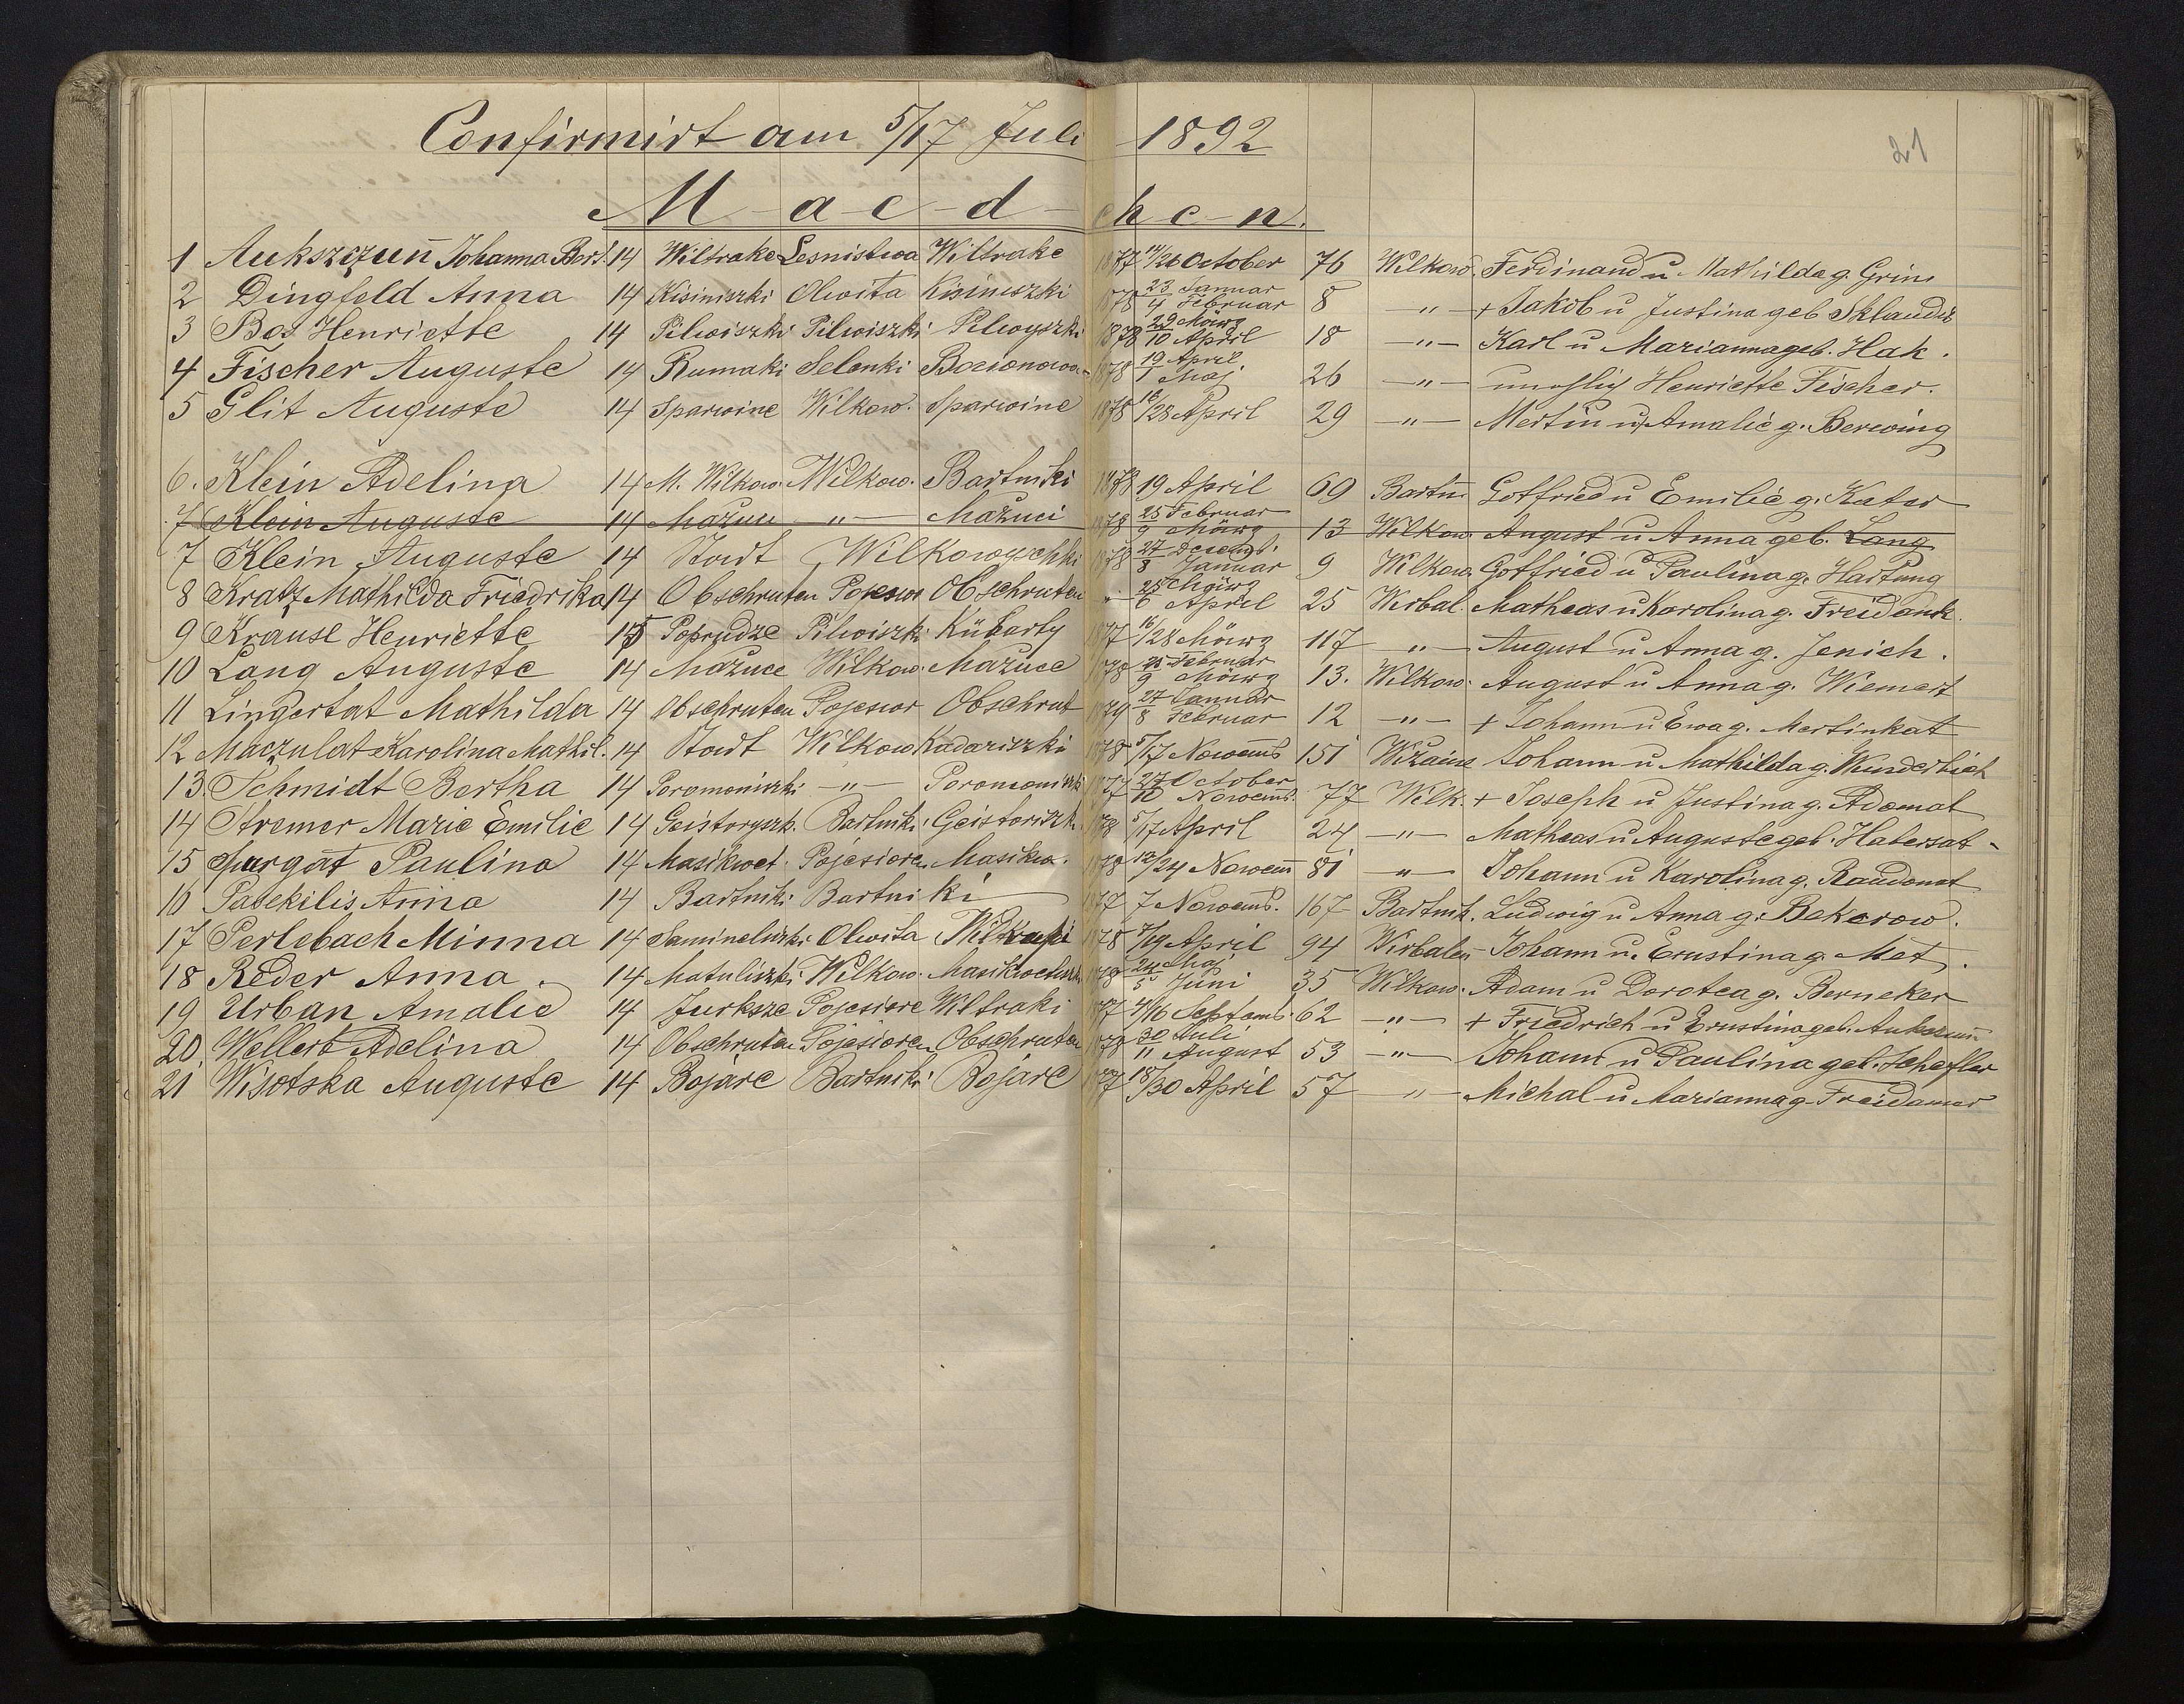 Confirmirt am 5/17 Juli 1892
21
M-a-e-d-chen.
1 Aukszczuñ Johanna Bert. 14 Wiltrake Lesnistwa Wiltrake 1877 14/26 October 76 Wilkow. Ferdinand u Mathilde g. Grin
2 Dingfeld Anna 14 Kisiniszki Olwita Kisiniszki 1878 23 Januar/4 Februar 8 -"- + Jakob u Justina geb Sklaudis
3 Bos Henriette 14 Pilwiszki Pilwiszki Pilwyszki 1878 29 März/10 April 18 -"- Karl u Marianna geb. Hak.
4 Fischer Auguste 14 Rumaki Selenki 1878 19 April/1 Maj 26 -"- unehlig Henriette Fischer.
5 Glit Auguste 14 Sparwine Wilkow. Sparwine 1878 16/28 April 29 -"- Mertin u Amalie g. Berwing
6. Klein Adelina 14 M. Wilkow. Wilkow. Bartniki 1878 19 April 69 Bartn. Gottfried u Emilie g. Kater
7 Klein Auguste 14 Mažuci -"- Mažuci 1878 25 Februar/9 März 13 Wilkow. August u Anna geb. Lang
7 Klein Auguste 14 Stadt Wilkowyschki 1878 27 Decemb./8 Januar 9 Wilkow. Gottfried u Paulina g. Hartung
8 Kratz Mathilda Friedrika 14 Obschruten Pojesior Obschruten " 25 März/6 April 25 Wirbal. Matheas u Karolina g. Freidank.
9 Krause Henriette 15 Poprudze Pilwiszki Kübarty 1877 16/28 März 117 -"- August u Anna g. Jenich.
10 Lang Auguste 14 Mažuce Wilkow. Mažuce 1878 25 Februar/9 März 13. Wilkow. August u Anna g. Wiemert
11 Lingertat Mathilda 14 Obschruten Pojesior Obschrut 1879 27 Januar/8 Februar 12 -"- + Johann u Ewa g. Mertinkat
12 Maczulat Karolina Mathil. 14 Stadt Wilkow Kadariszki 1878 5/17 Nowemb 151 Wižaine Johann u Mathilda g. Wunderlich
13. Schmidt Bertha 14 Poromoniszki -"- Poromoniszki 1877 27 October/10 Nowemb. 77 Wilk. + Joseph u Justina g. Adomat
14 Stremer Marie Emilie 14 Geistoryszk. Bartniki Geistoriszk. 1878 5/17 April 24 -"- Matheas u Auguste geb. Habersat
15 Spurgat Paulina 14 Masikwet. Pojesiore. Masikw. 1878 12/24 Nowem 81 -"- Johann u Karolina g. Raudonat
16 Patekilis Anna 14 Bartniki Bartniki 1877 7 Nowemb. 167 Bartnik. Ludwig u Anna g. Bekerow.
17 Perlebach Minna 14 Olwita 1878 7/19 April 94 Wirbalen Johann u. Ernstina g. Met.
18 Reder Anna. 14 Matuliszki Wilkow. Masikwetuszk 1878 24 Maj/5 Juni 35 Wilkow. Adam u Dorotea g. Berneker
19 Urban Amalie 14 Jurksze Pojesiore Wiltraki 1877 4/16 Septemb. 62 -"- + Friedrich u Ernstina geb. Aukszuñ
20. Wellert Adelina 14 Obschruten Pojesioren Obschruten 1878 30 Juli/11 August 53 -"- Johann u Paulina geb. Schefler
21 Wisotska Auguste 14 Bojare Bartniki Bojare 1877 18/30 April 57 -"- Michal u Marianna g. Freidamer